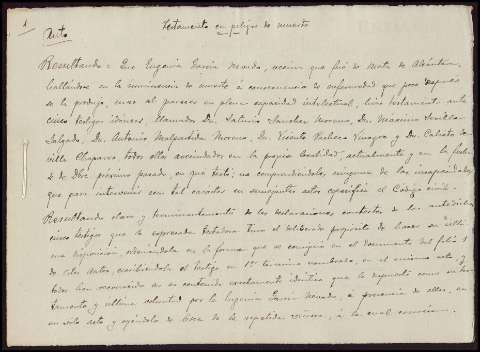 1
Testamento en peligro de muerte
Auto
Resultando: Que Eugenia García Nevado, vecina que fué de Mata de Alcántara,
hallándose en la inminencia de muerte á consecuencia de enfermedad que poco después
se la produjo, en su al parecer en plena capacidad intelectual, hizo testamento ante
cinco testigos idóneos, llamados Dn. Saturio Sanchez Moreno, Dn. Maximino Sevillano
Salgado, Dn. Antonio Malpartida Moreno, Dn. Vicente Pacheco Vinagre y Dn. Calixto Se-
villa Chaparro todos ellos avecindados en la propia localidad, actualmente y en la fecha
2 de Dbre próximo pasado, en que testó; no comprendiéndoles ninguna de las incapacidades
que para intervenir con tal caracter en semejantes actos especifica el Código civil.
Resultando clara y terminantemente de las declaraciones contestes de los antedichos
cinco testigos que la expresada testadora tuvo el deliberado propósito de hacer su última
disposición, ordenándola en la forma que se consigna en el documento del folio 1
de estos autos, escribiéndola el testigo en 1er termino nombrado, en el mismo acto y
todos han reconocido en su contenido exactamente idéntico que lo dispuesto como testa-
mento y última voluntad por la Eugenia García Nevado, á presencia de ellos, en
un solo acto y oyéndolo de boca de la repetida señora, á la cual conocian.